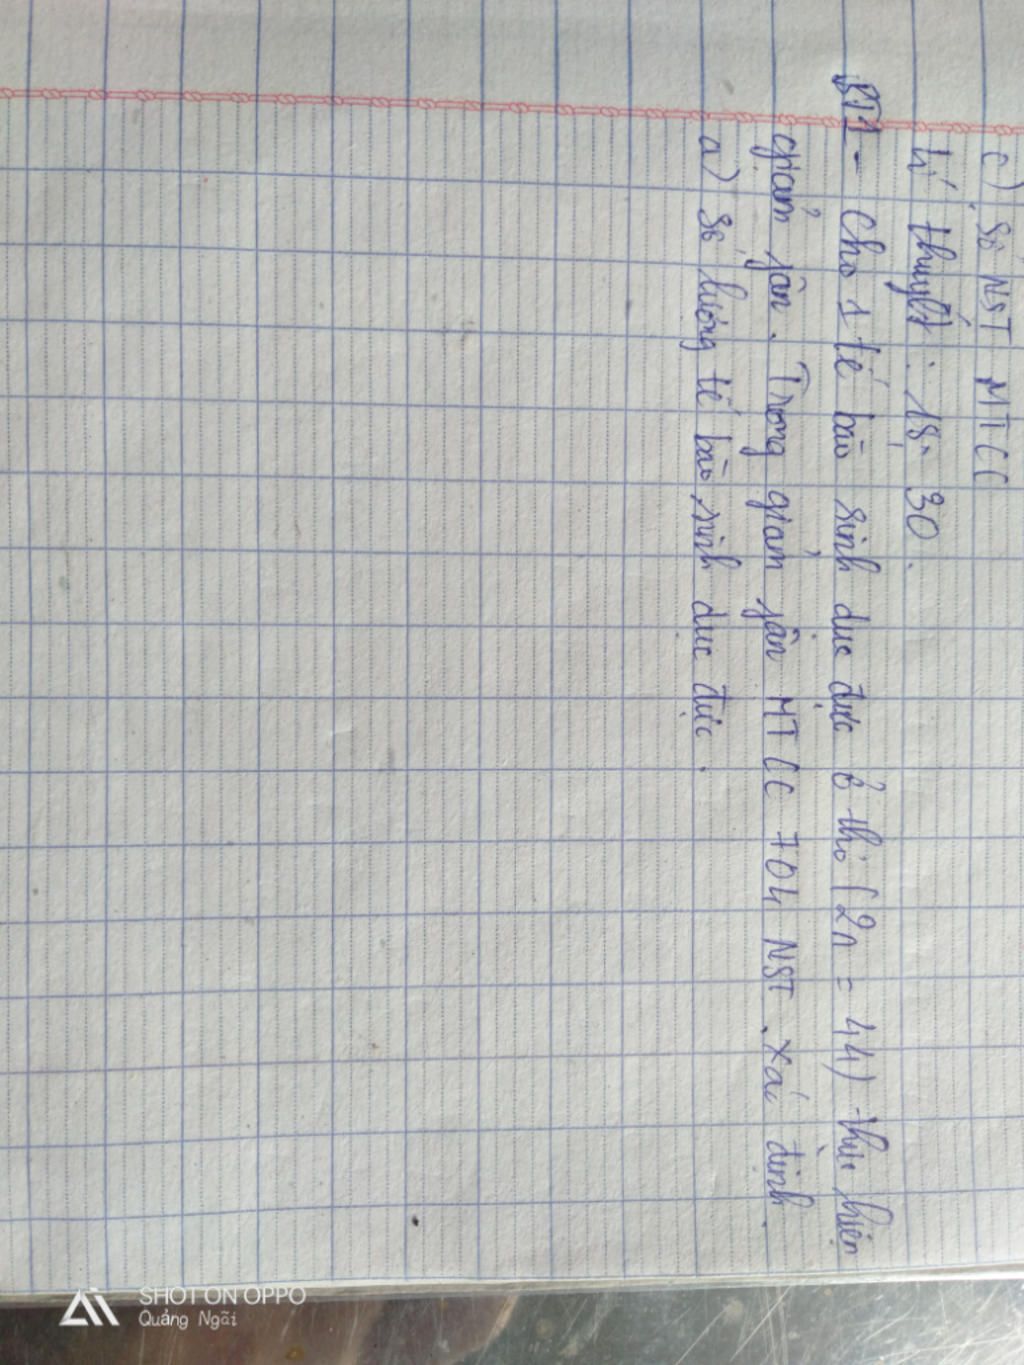 c) Số NST MTCC
Lí thuyết : 18, 30.
BT1 - Cho 1 tế bào sinh dục đực ở thỏ (2n = 44) thực hiện
giảm phân. Trong giảm phân MTCC 704 NST. Xác định
a) Số lượng tế bào sinh dục đực.
SHOT ON OPPO
Quảng Ngãi